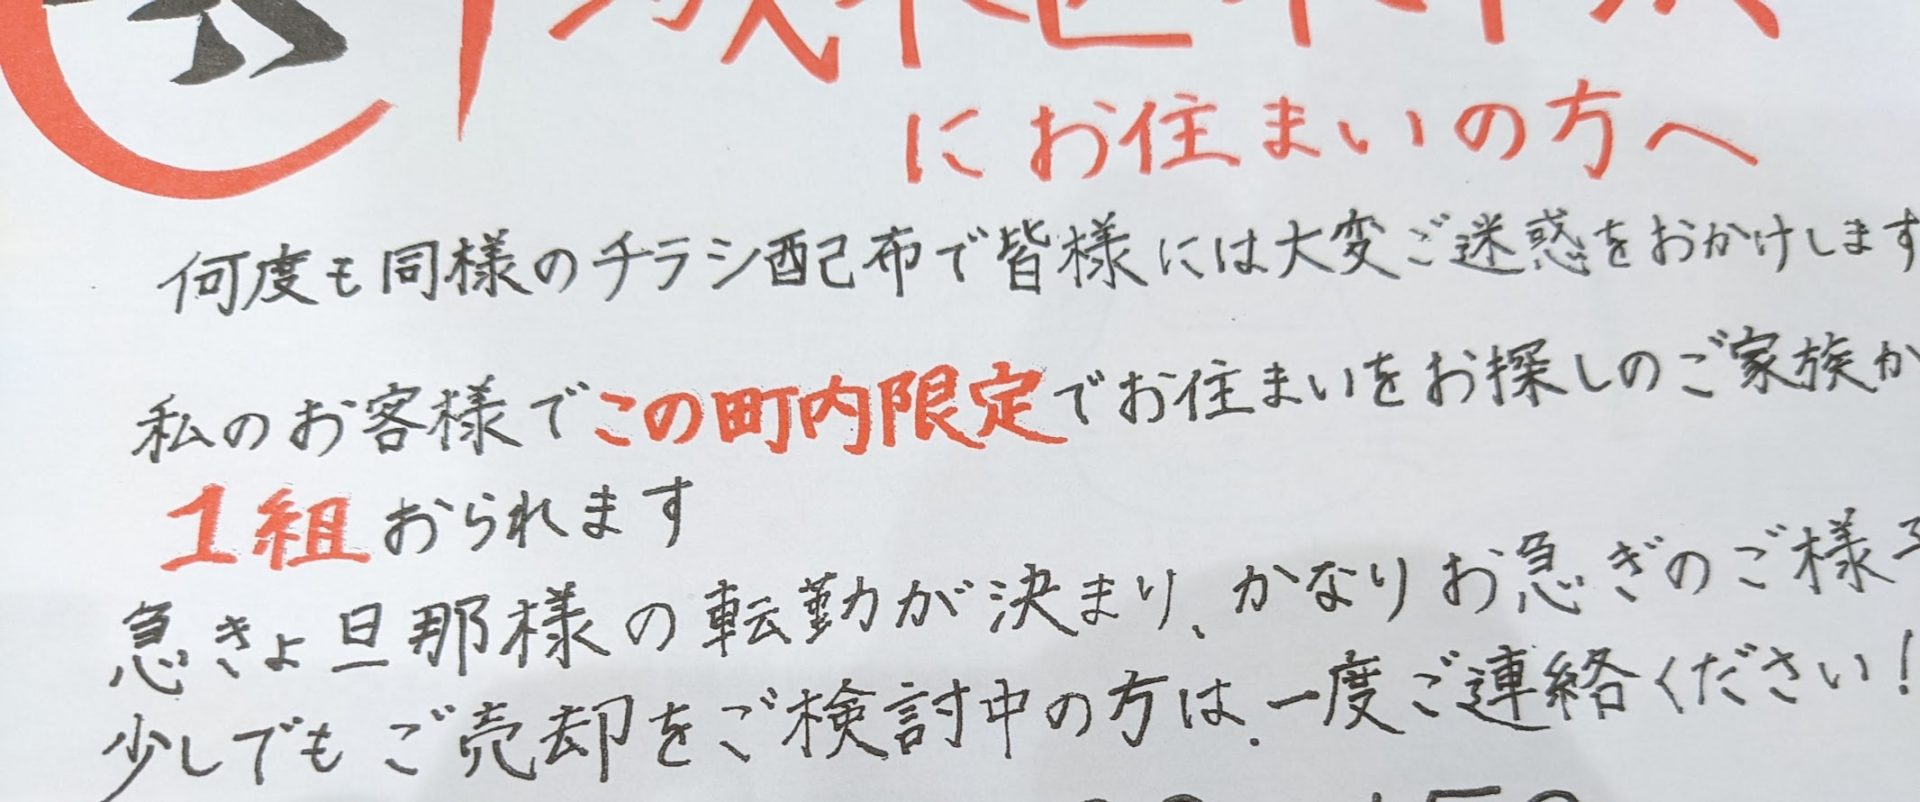 にお住まいの方へ
何度も同様のチラシ配布で皆様には大変ご迷惑をおかけします
私のお客様でこの町内限定でお住まいをお探しのご家族が
1組おられます
急きょ旦那様の転勤が決まり、かなりお急ぎのご様子
少しでもご売却をご検討中の方は、一度ご連絡ください!